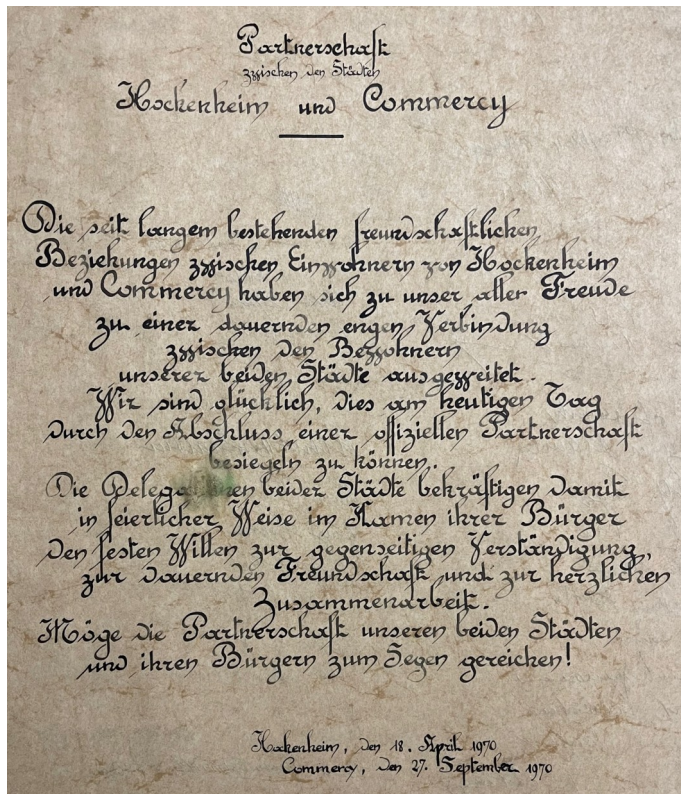 Partnerschaft
zwischen den Städten
Hockenheim und Commercy
Die seit langem bestehenden freundschaftlichen
Beziehungen zwischen Einwohnern von Hockenheim
und Commercy haben sich zu unser aller Freude
zu einer dauernden engen Verbindung
zwischen den Bewohnern
unserer beiden Städte ausgeweitet.
Wir sind glücklich, dies am heutigen Tag
durch den Abschluss einer offiziellen Partnerschaft
besiegeln zu können.
Die Delegationen beider Städte bekräftigen damit
in feierlicher Weise im Namen ihrer Bürger
den festen Willen zur gegenseitigen Verständigung,
zur dauernden Freundschaft und zur herzlichen
Zusammenarbeit.
Möge die Partnerschaft unseren beiden Städten
und ihren Bürgern zum Segen gereichen!
Hockenheim, den 18. April 1970
Commercy, den 27. September 1970